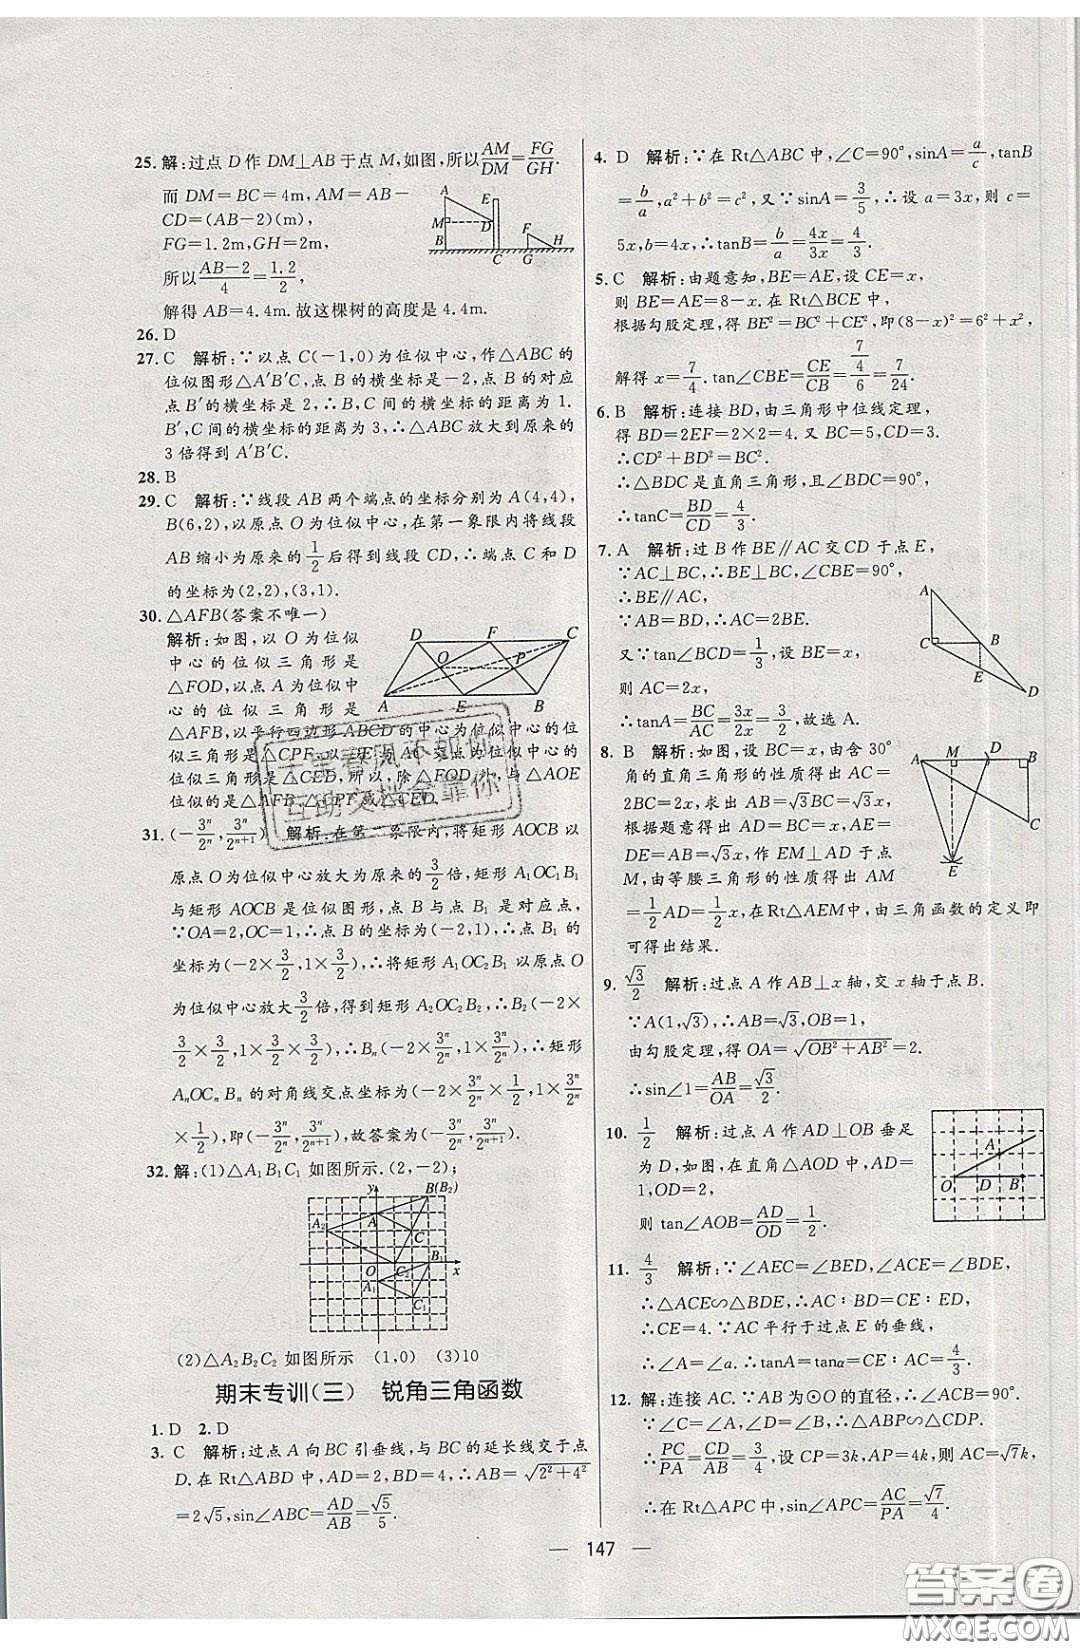 25. 解:过点 D 作 DM⊥AB 于点 M,如图,所以AM/DM=FG/GH.
而 DM=BC=4m,AM=AB-
CD=(AB-2)(m),
FG=1.2m,GH=2m,
所以(AB-2)/4=1.2/2,
解得 AB=4.4m.故这棵树的高度是 4.4m.
A E M D F B C G H
26. D
27. C 解析:∵以点 C(-1,0)为位似中心,作△ABC 的
位似图形△A′B′C,点 B 的横坐标是-2,点 B 的对应
点 B′的横坐标是 2,∴B,C 间的横坐标的长度为 1.
B′,C 间的横坐标的长度为 3,∴△ABC 放大到原来的
3 倍得到 A′B′C.
28. B
29. C 解析:∵线段 AB 两个端点的坐标分别为 A(4,4),
B(6,2),以原点 O 为位似中心,在第一象限内将线段
AB 缩小为原来的1/2后得到线段 CD,∴端点 C 和 D
的坐标为(2,2),(3,1).
30. △AFB(答案不唯一)
解析:如图,以 O 为位似
中心的位似三角形是
△FOD,以点 A 为位似中
心的位似三角形是
D F C O P A E B
△AFB,以平行四边形 ABCD 的中心为位似中心的位
似三角形是△CPF,以 C 为位似中心的位
似三角形是△CED,所以,除△FOD外,与△AOE
位似的是△AFB,△CPF 或△CED.
31. (-3ⁿ/2ⁿ,3ⁿ/2ⁿ⁺¹) 解析:在第一象限内,将矩形 AOCB 以
原点 O 为位似中心放大为原来的3/2倍,矩形 A₁OC₁B₁
与矩形 AOCB 是位似图形,点 B 与点 B₁ 是对应点,
∵OA=2,OC=1,∴点 B 的坐标为(-2,1),∴点 B₁ 的
坐标为(-2×3/2,1×3/2),∴将矩形 A₁OC₁B₁以原点 O
为位似中心放大3/2倍,得到矩形 A₂OC₂B₂,∴B₂(-2×
3/2×3/2,1×3/2×3/2),∴Bₙ(-2×3ⁿ/2ⁿ,1×3ⁿ/2ⁿ),∴矩形
AₙOCₙBₙ 的对角线交点坐标为(-2×3ⁿ/2ⁿ×1/2,1×3ⁿ/2ⁿ
×1/2),即(-3ⁿ/2ⁿ,3ⁿ/2ⁿ⁺¹),故答案为(-3ⁿ/2ⁿ,3ⁿ/2ⁿ⁺¹).
32. 解:(1)△A₁B₁C₁ 如图所示.(2,-2);
y B(B₂) A₂ A C O C₂ B₁ x A₁ C₁
(2)△A₂B₂C₂ 如图所示 (1,0) (3)10
期末专训(三) 锐角三角函数
1. D 2. D
3. C 解析:过点 A 向 BC 引垂线,与 BC 的延长线交于点
D.在 Rt△ABD 中,AD=2,BD=4,∴AB=√(2²+4²)
=2√5,sin∠ABC=AD/AB=√5/5.
4. D 解析:∵在 Rt△ABC 中,∠C=90°,sinA=a/c,tanB
=b/a,a²+b²=c²,又∵sinA=3/5,∴设 a=3x,则 c=
5x,b=4x,∴tanB=b/a=4x/3x=4/3.
5. C 解析:由题意知,BE=AE,设 CE=x,
则 BE=AE=8-x.在 Rt△BCE 中,
根据勾股定理,得 BE²=BC²+CE²,即(8-x)²=6²+x²,
解得 x=7/4.tan∠CBE=CE/CB=(7/4)/6=7/24.
6. B 解析:连接 BD,由三角形中位线定理,
得 BD=2EF=2×2=4.又 BC=5,CD=3.
∴CD²+BD²=BC².
∴△BDC 是直角三角形,且∠BDC=90°,
∴tanC=BD/CD=4/3.
7. A 解析:过 B 作 BE∥AC 交 CD 于点 E,
∵AC⊥BC,∴BE⊥BC,∠CBE=90°,
∴BE∥AC.
∵AB=BD,∴AC=2BE.
又∵tan∠BCD=1/3,设 BE=x,
则 AC=2x,
∴tanA=BC/AC=3x/2x=3/2,故选 A.
A C B E D
8. B 解析:如图,设 BC=x,由含 30°
的直角三角形的性质得出 AC=
2BC=2x,求出 AB=√3BC=√3x,
根据题意得出 AD=BC=x,AE=
DE=AB=√3x,作 EM⊥AD 于点
M,由等腰三角形的性质得出 AM
=1/2AD=1/2x,在Rt△AEM中,由三角函数的定义即
可得出结果.
A M D B C E
9. √3/2 解析:过点 A 作 AB⊥x 轴,交 x 轴于点 B.
∵A(1,√3),∴AB=√3,OB=1,
由勾股定理,得 OA=√(OB²+AB²)=2.
∴sin∠1=AB/OA=√3/2.
10. 1/2 解析:过点 A 作 AD⊥OB 垂足
为 D,如图,在△AOD 中,AD=
1,OD=2,
则 tan∠AOB=AD/OD=1/2.
A O D B
11. 4/3 解析:∵∠AEC=∠BED,∠ACE=∠BDE,
∴△ACE∽△BDE,∴AC∶BD=CE∶ED,
∴CE=4.∵AC 平行于过点 E 的垂线,
∴∠A=∠α.∴tanA=tanα=CE/AC=4/3.
12. 解:连接 AC.∵AB 为⊙O 的直径,∴∠ACP=90°.
∵∠C=∠B,∠A=∠D,∴△ABP∽△CDP.
∴PC/PA=CD/AB=3/4,设 CP=3k,AP=4k,则 AC=√7k,
∴在 Rt△APC 中,sin∠APC=AC/PA=√7/4.
147
答案圈
MXQE.COM